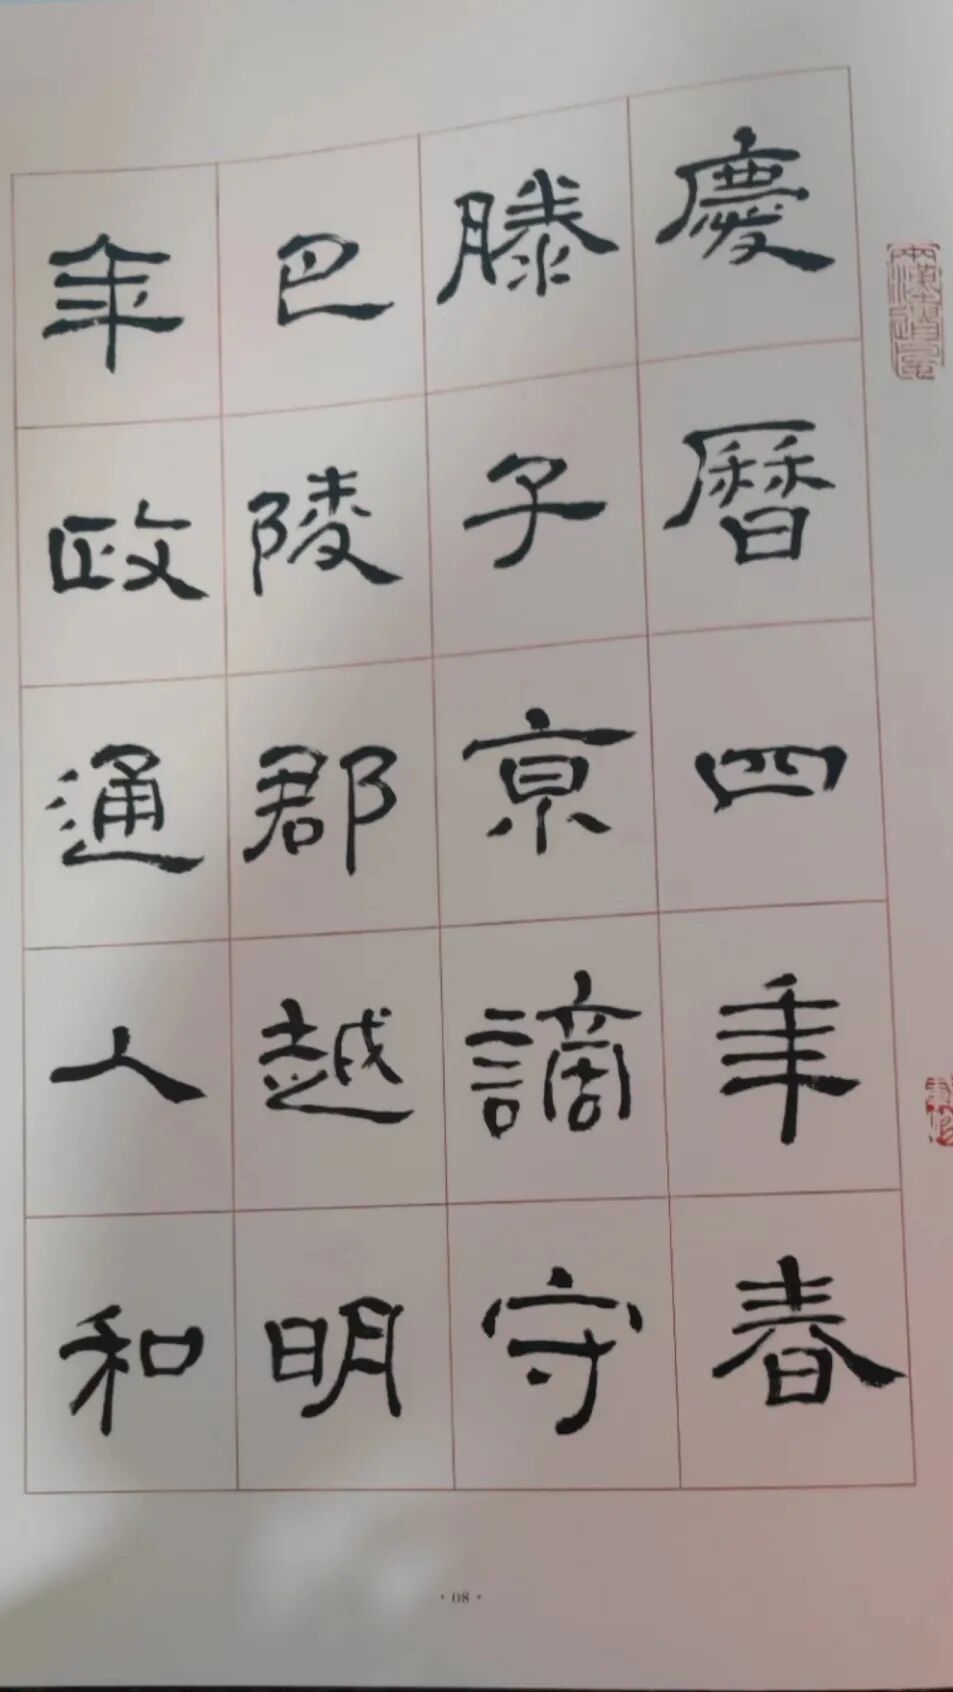 兩漢遺風
慶曆四年春
滕子京謫守
巴陵郡越明
年政通人和
·08·